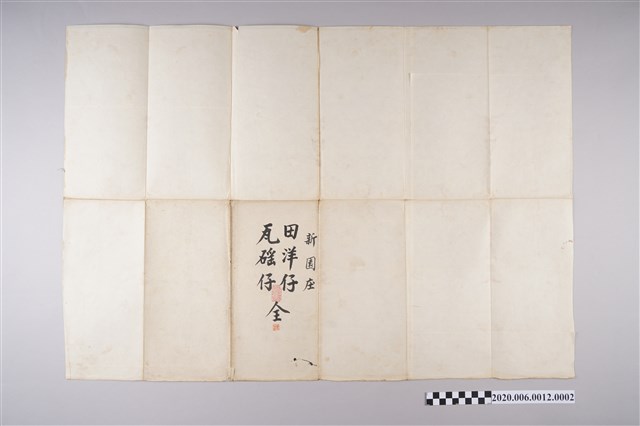 新園庄
田洋仔
瓦磘仔
全
2020.006.0012.0002